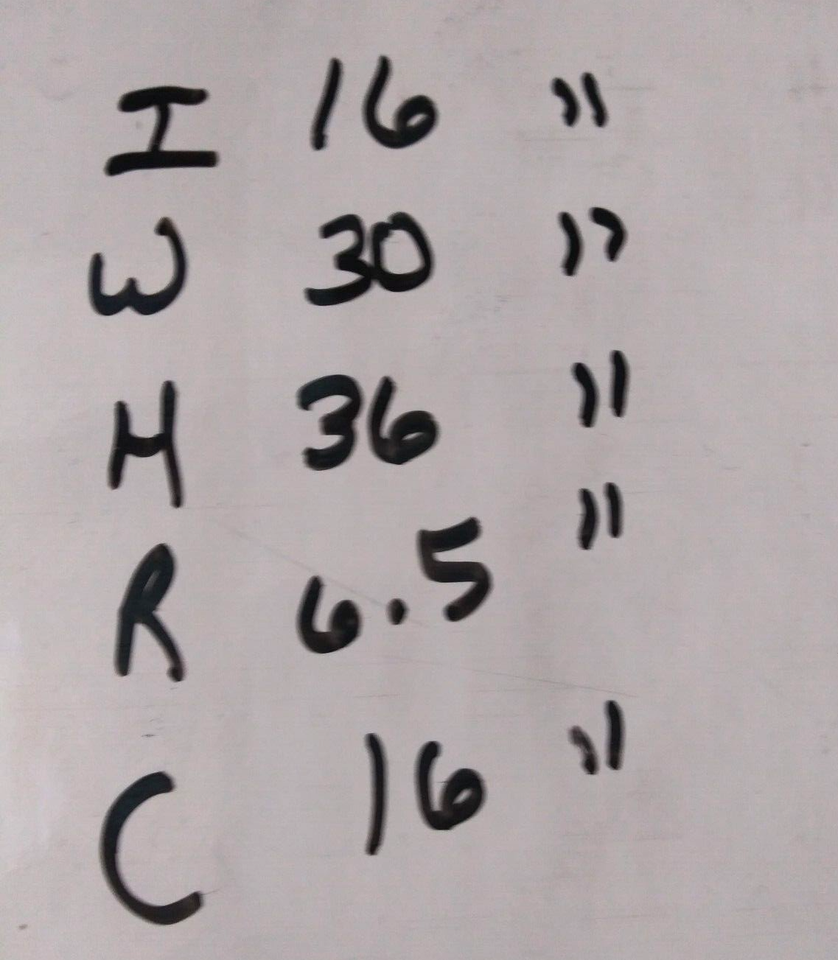 I 16 "
W 30 "
H 36 "
R 6.5 "
C 16 "